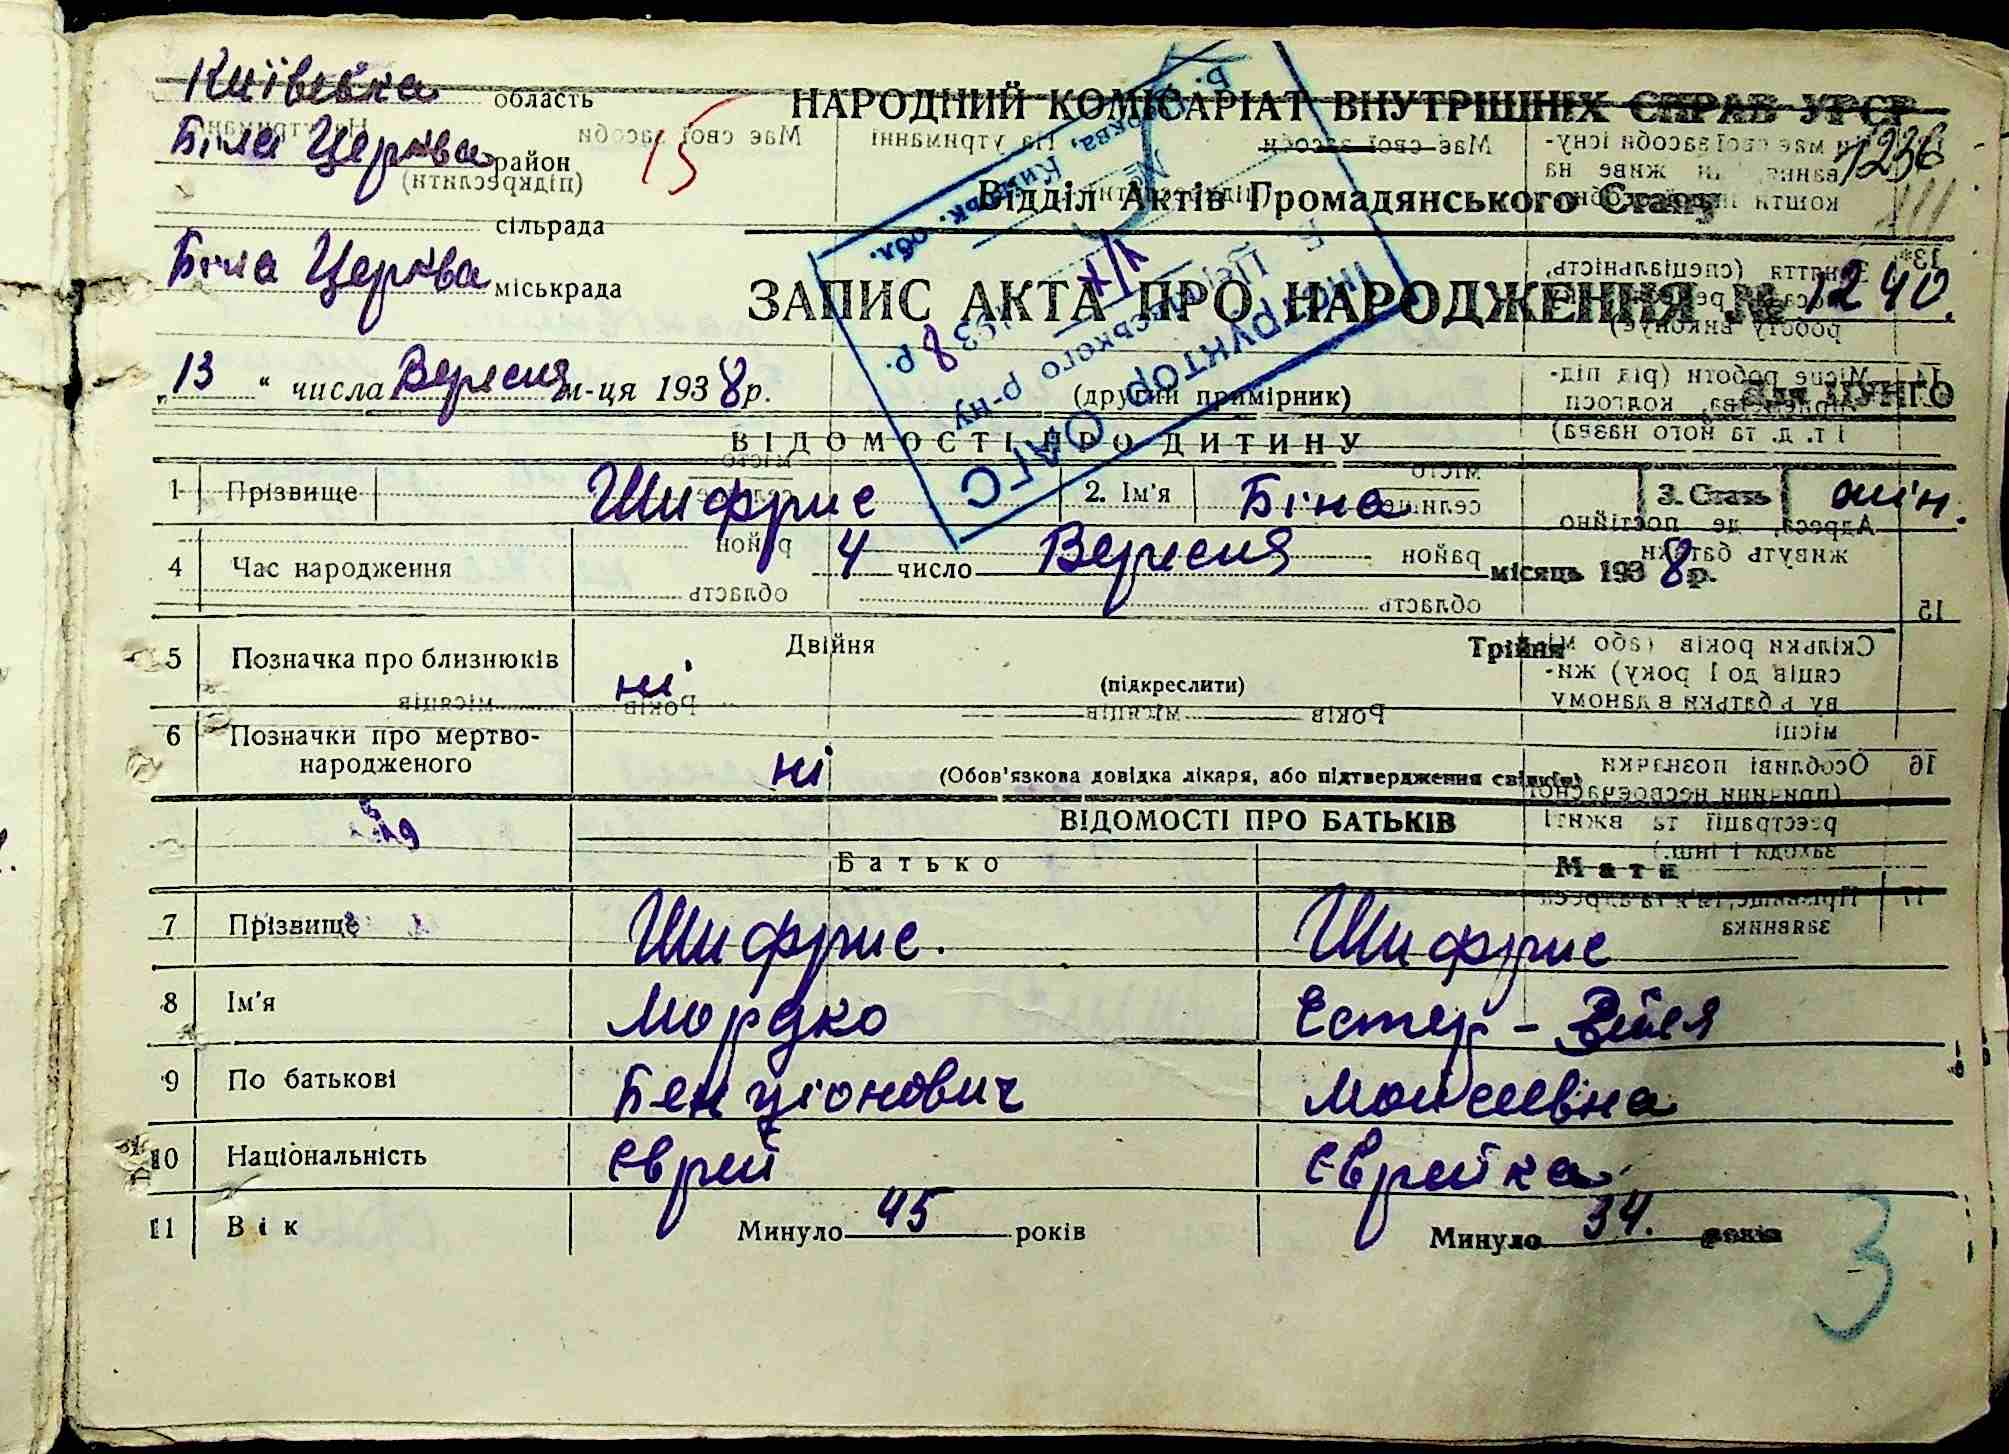 Київська область
Біла Церква район
сільрада
Біла Церква міськрада
15
НАРОДНИЙ КОМІСАРІАТ ВНУТРІШНІХ СПРАВ УРСР
1236
Відділ Актів Громадянського Стану
ЗАПИС АКТА ПРО НАРОДЖЕННЯ № 1240.
„13“ числа Вересня м-ця 1938 р.
(другий примірник)
Для ЦУНГО
ВІДОМОСТІ ПРО ДИТИНУ
1 Прізвище Шифрис 2. Ім'я Біна 3. Стать жін.
4 Час народження 4 число Вересня місяць 1938 р.
5 Позначка про близнюків Двійня Трійня
ні (підкреслити)
6 Позначки про мертво-
народженого ні (Обов'язкова довідка лікаря, або підтвердження свідків)
ВІДОМОСТІ ПРО БАТЬКІВ
Батько Мати
7 Прізвище Шифрис. Шифрис
8 Ім'я Мордко Естер -
9 По батькові Бенціонович Мойсеевна
10 Національність єврей єврейка
11 Вік Минуло 45 років Минуло 34. років
3